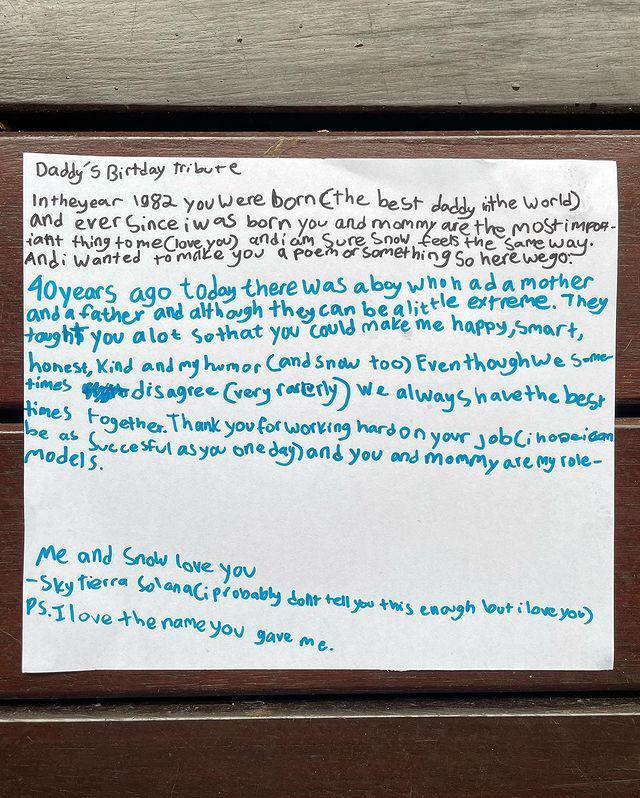 Daddy's Birtday tribute
In the year 1982 you were born (the best daddy in the world)
and ever since i was born you and mommy are the most impor-
tant thing to me (love you) and i am sure Snow feels the same way.
And i wanted to make you a poem or something so here we go:
40 years ago today there was a boy who had a mother
and a father and although they can be a little extreme. They
taught you alot so that you could make me happy, smart,
honest, kind and my humor (and snow too) Even though we some-
times disagree (very rarerly) we always have the best
times together. Thank you for working hard on your job (i hope i can
be as succesful as you one day) and you and mommy are my role-
models.
Me and Snow love you
-Sky Tierra Solana (i probably dont tell you this enough but i love you)
PS. I love the name you gave me.